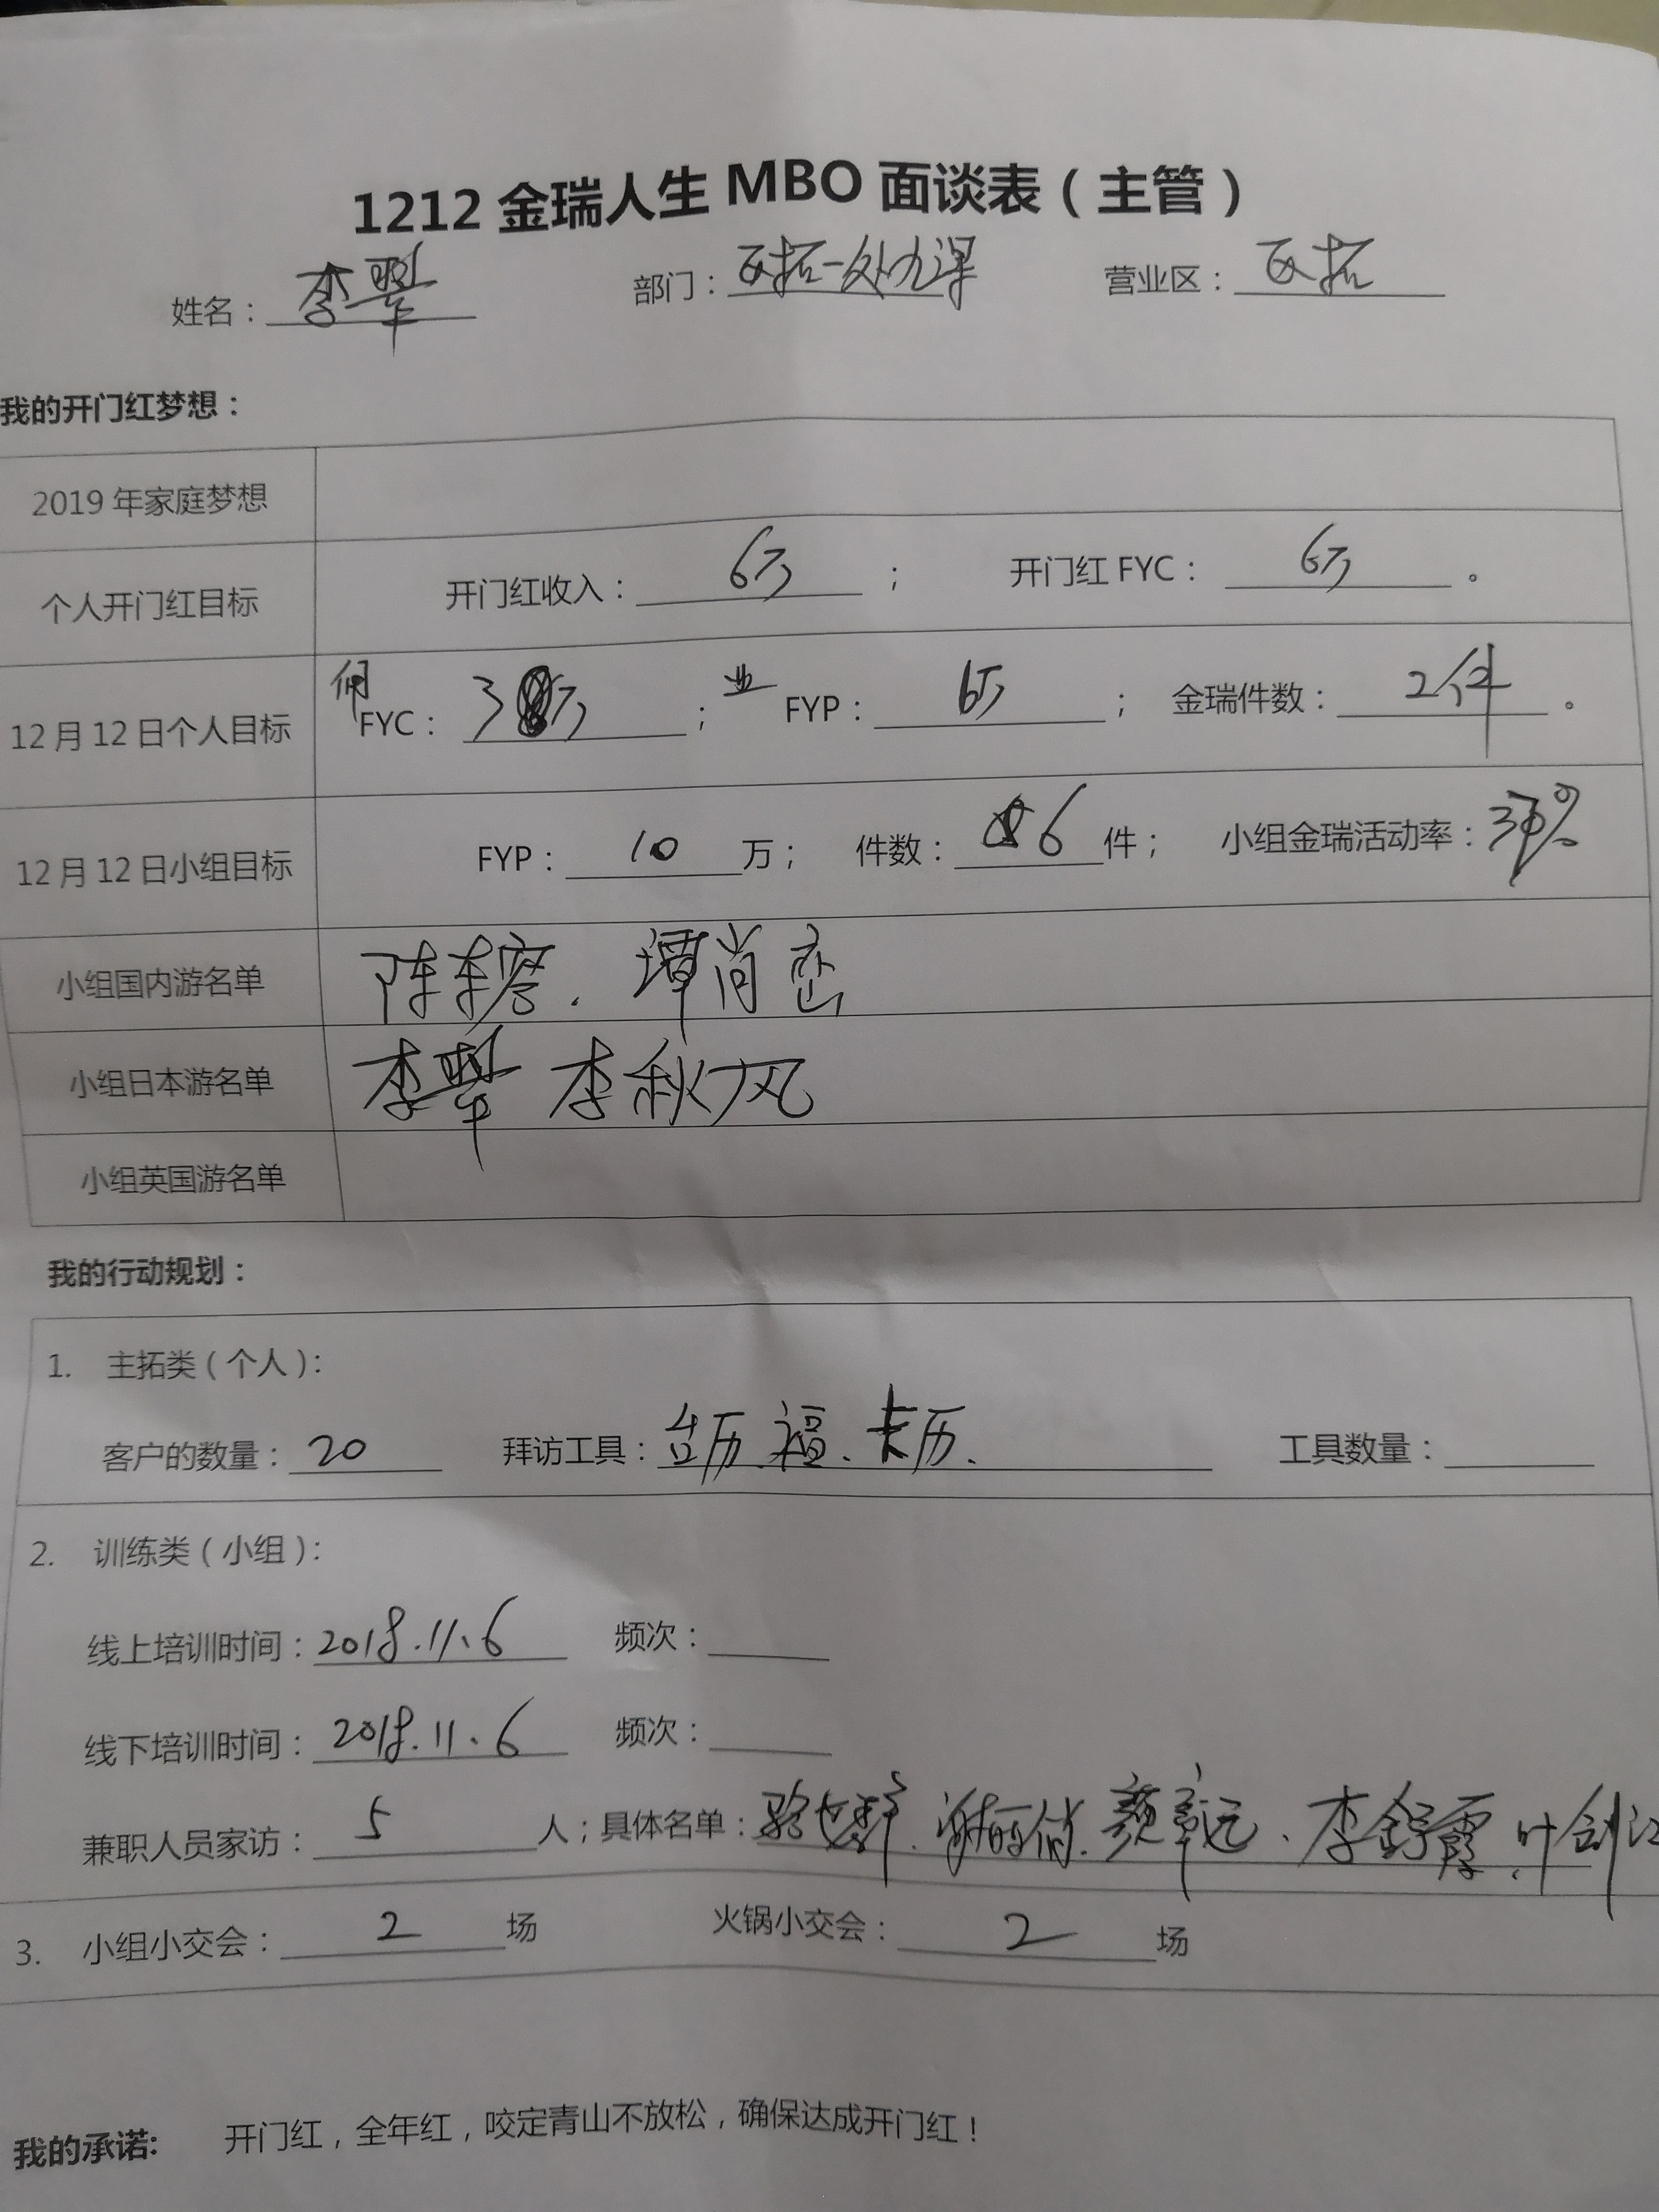 1212金瑞人生MBO面谈表（主管）
姓名：李翠 部门：区拓一处九课 营业区：区拓
我的开门红梦想：
2019年家庭梦想
个人开门红目标 开门红收入：6万； 开门红FYC：6万。
12月12日个人目标 佣FYC：3万； 业FYP：6万； 金瑞件数：2件。
12月12日小组目标 FYP：10万； 件数：6件； 小组金瑞活动率：
小组国内游名单 陈、谭尚峦
小组日本游名单 李翠 李秋风
小组英国游名单
我的行动规划：
1. 主拓类（个人）：
客户的数量：20 拜访工具：台历、福、卡历、 工具数量：
2. 训练类（小组）：
线上培训时间：2018.11.6 频次：
线下培训时间：2018.11.6 频次：
兼职人员家访：5人；具体名单：骆、谢丽俏、颜章远、李舒霞、叶剑江
3. 小组小交会：2场 火锅小交会：2场
我的承诺： 开门红，全年红，咬定青山不放松，确保达成开门红！